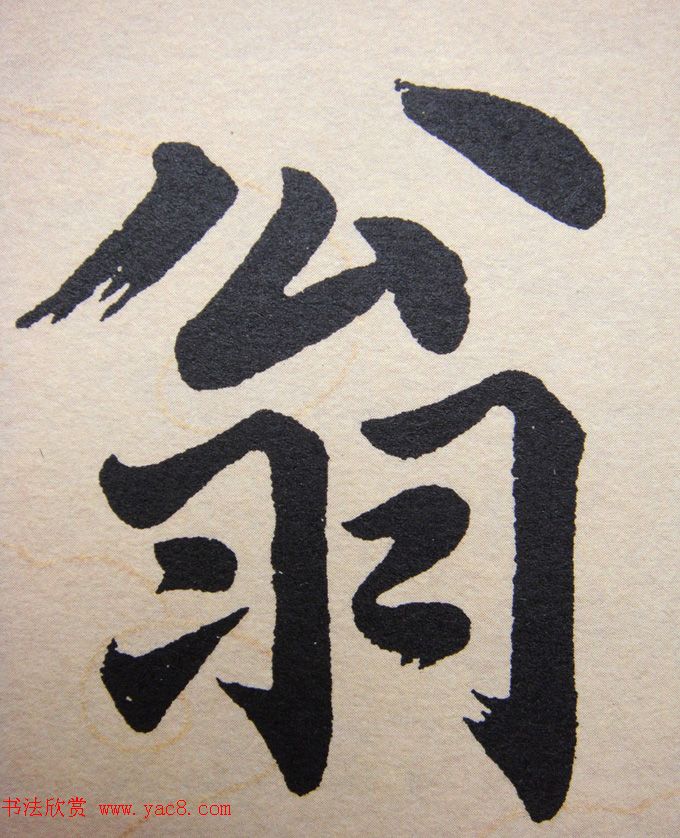 翁
书法欣赏 www.yac8.com